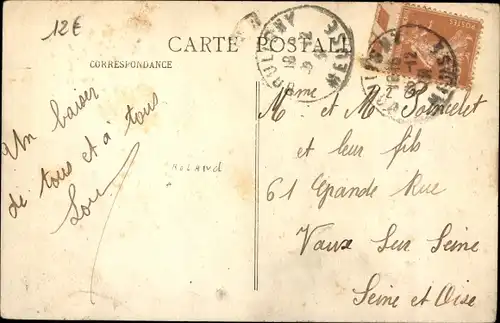 12€
CARTE POSTALE
CORRESPONDANCE
MEUSE
POSTES
Un baiser
de tous et à tous
Lou
ROLAND
Mme
M. et M. Poincelet
et leur fils
61 Grande Rue
Vaux Sur Seine
Seine et Oise